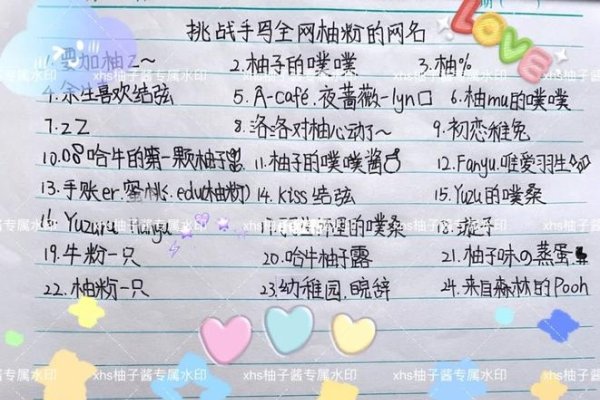 挑战手写全网柚粉的网名
要加柚Z～ 2.柚子的噗噗 3.柚%
4.余生喜欢结弦 5.A-café.夜蔷薇-lyn口 6.柚mu的噗噗
7.ZZ 8.洛洛对柚心动了～ 9.初恋雅兔
10.哈牛的第一颗柚子 11.柚子的噗噗酱 12.Fanyu.唯爱羽生
13.手账er.蜜桃.edu(柚粉) 14.kiss结弦 15.Yuzu的噗桑
16.Yuzuru 的噗桑
19.牛粉一只 20.哈牛柚子露 21.柚子味の蒸蛋
22.柚粉一只 23.幼稚园.晓辞 24.来自森林的Pooh
LOVE
xhs柚子酱专属水印